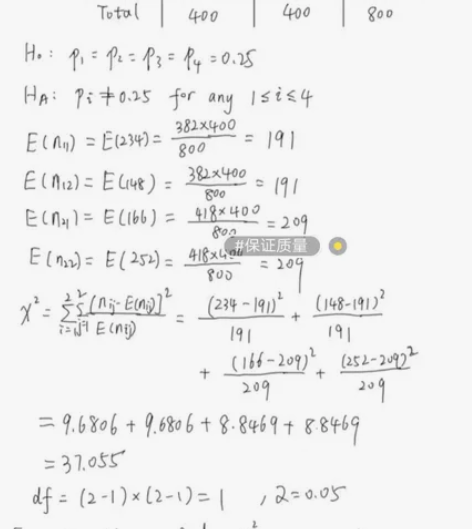 Total | 400 | 400 | 800
H₀: p₁ = p₂ = p₃ = p₄ = 0.25
H_A: pᵢ ≠ 0.25 for any 1 ≤ i ≤ 4
E(n₁₁) = E(234) = 382×400/800 = 191
E(n₁₂) = E(148) = 382×400/800 = 191
E(n₂₁) = E(166) = 418×400/800 = 209
#保证质量
E(n₂₂) = E(252) = 418×400/800 = 209
χ² = Σ²ᵢ₌₁ Σ²ⱼ₌₁ [nᵢⱼ-E(nᵢⱼ)]²/E(nᵢⱼ) = (234-191)²/191 + (148-191)²/191
+ (166-209)²/209 + (252-209)²/209
= 9.6806 + 9.6806 + 8.8469 + 8.8469
= 37.055
df = (2-1)×(2-1) = 1 , α=0.05